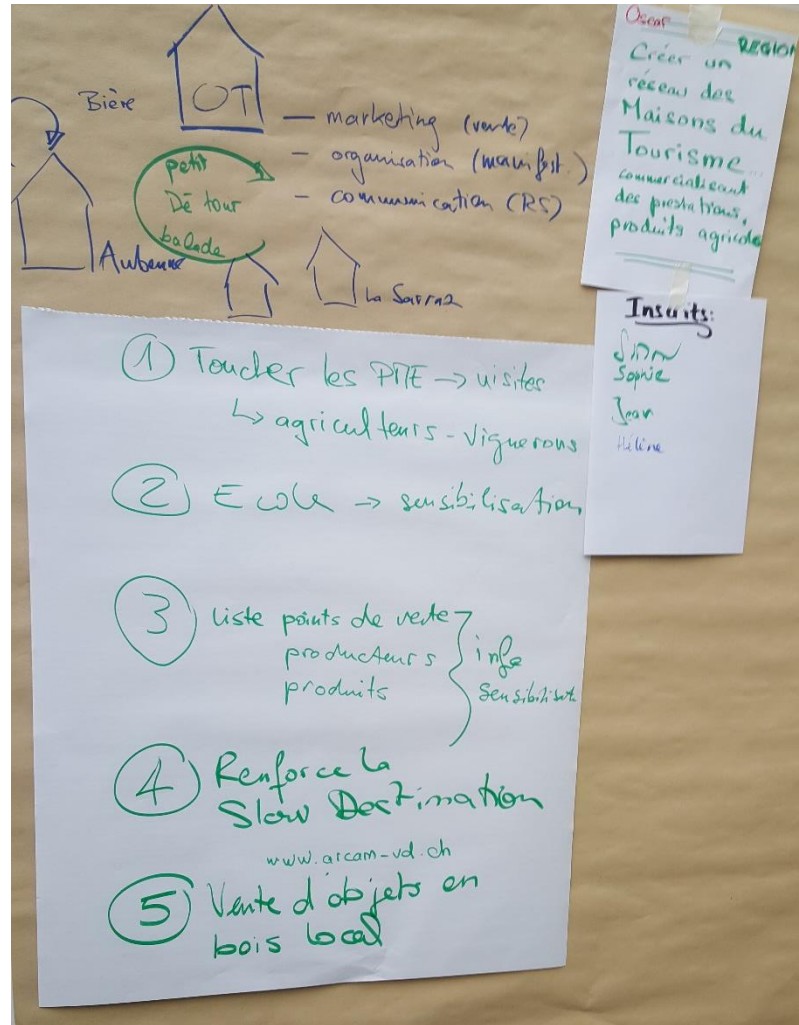 Bière
OT
— marketing (vente)
- organisation (manifest.)
- communication (RS)
petit
Dé tour
balade
Aubonne
La Sarraz
Oscar
REGION
Créer un
réseau des
Maisons du
Tourisme
commercialisant
des prestations,
produits agricole
Inscrits:
Sophie
Jean
Hélène
① Toucher les PME → visites
↳ agriculteurs - vignerons
② Ecole → sensibilisation
③ liste points de vente
producteurs
produits
info
sensibilisat
④ Renforce la
Slow Destination
www.arcam-vd.ch
⑤ Vente d'objets en
bois local